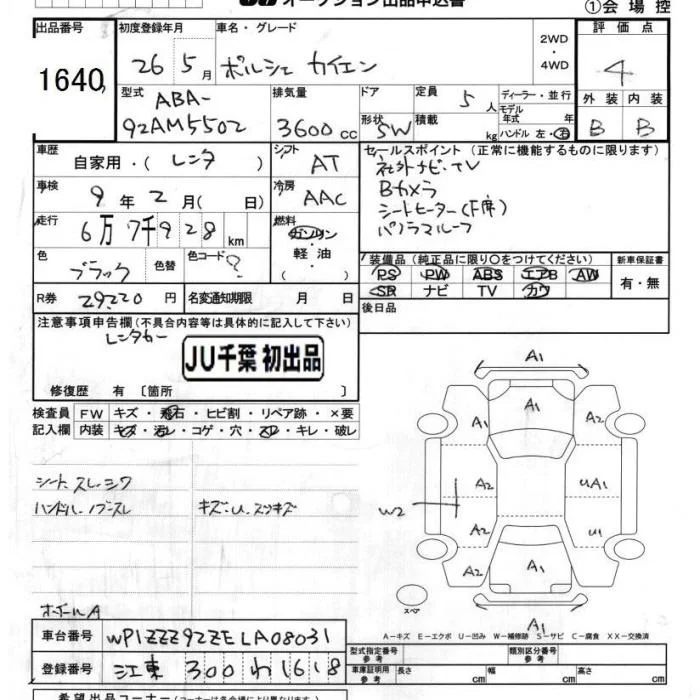 オークション出品申込書
①会場控
出品番号
1640
初度登録年月
26 5月
車名・グレード
ポルシェ カイエン
2WD
・
4WD
評価点
4
外装 内装
B B
型式
ABA-
92AM5502
排気量
3600cc
ドア
形状
SW
定員
5人
積載
kg
ディーラー・並行
モデル
年式 年
ハンドル 左・右
車歴
自家用・(レンタ)
シフト
AT
セールスポイント(正常に機能するものに限ります)
社外ナビ・TV
Bカメラ
シートヒーター(F席)
パノラマルーフ
車検
9年2月(日)
冷房
AAC
走行
6万7千928km
燃料
ガソリン
・
軽油
・
( )
色
ブラック
色替
色コード
?
装備品(純正品に限り○をつけてください)
PS PW ABS エアB AW
SR ナビ TV カワ
新車保証書
有・無
R券
29,220円
名変通知期限
月 日
後日品
注意事項申告欄(不具合内容等は具体的に記入して下さい)
レンタカー
JU千葉 初出品
修復歴 有〔箇所 〕
検査員
記入欄
FW キズ・飛石・ヒビ割・リペア跡・×要
内装 キズ・汚レ・コゲ・穴・スレ・キレ・破レ
シート スレ・シワ
ハンドル・ノブスレ
キズ・U・スリキズ
ホイールA
A1
A1
A1
A1
A2
UA1
W2
A2
U1
A2
A1
A1
スペア
A−キズ E−エクボ U−凹み W−補修跡 S−サビ C−腐食 XX−交換済
車台番号
WP1ZZZ92ZELA08031
登録番号
江東 300 わ 1618
型式指定番号
参考
類別区分番号
参考
車庫証明用
参考
長さ cm
幅 cm
高さ cm
希望出品コーナー